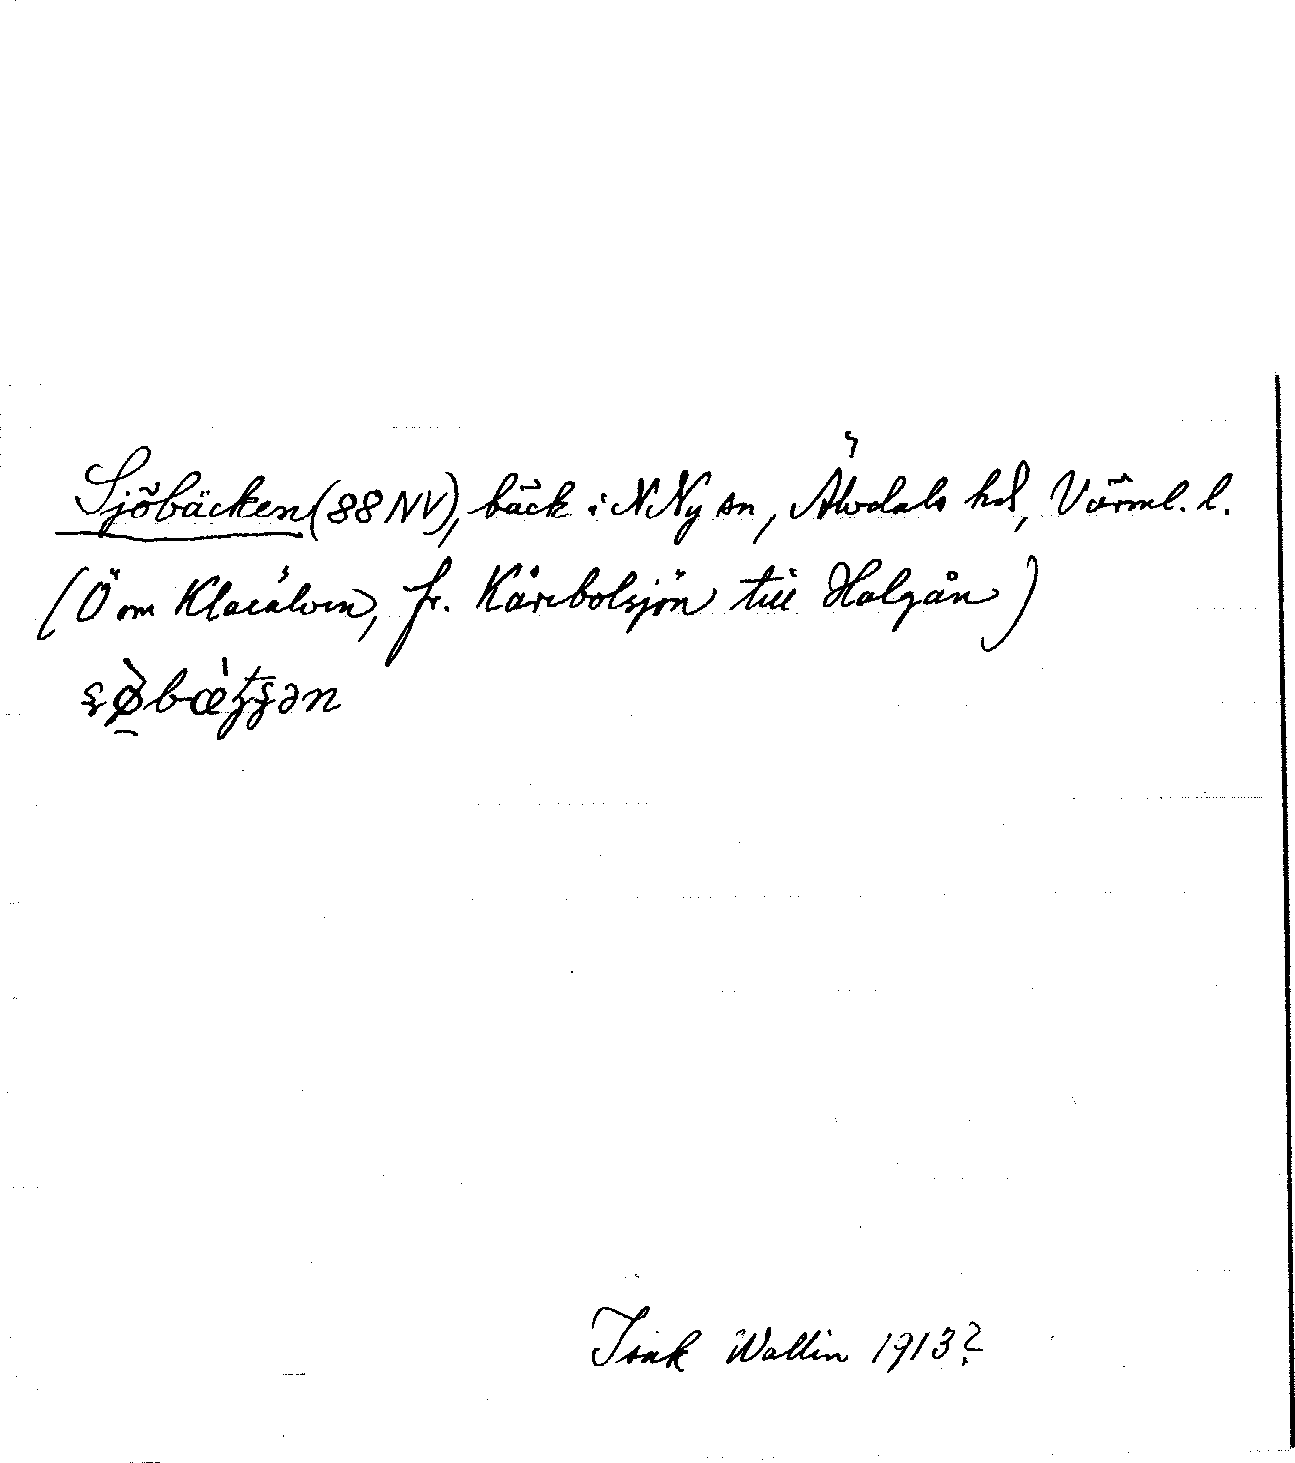 Sjöbäcken (88 NV), bäck i N Ny sn, Älvdals hd, Värml. l.
(Ö om Klarälven, fr. Kårebolsjön till Halgån)
Isak Wallin 1913?